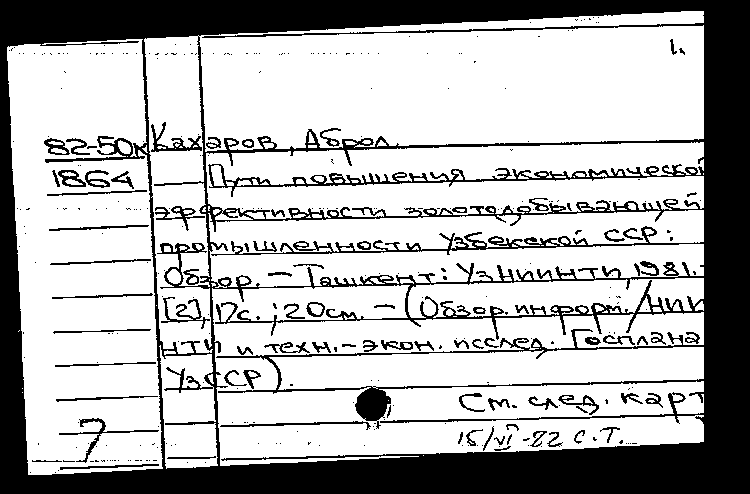 1.
82-50к Кахаров, Аброл.
1864 Пути повышения экономической
эффективности золотодобывающей
промышленности Узбекской ССР:
Обзор. - Ташкент: УзНИИНТИ, 1981. -
[2], 17с.; 20см. - (Обзор. информ. / НИИ
НТИ и техн.-экон. исслед. Госплана
УзССР).
См. след. карт
7 15/VI-82 С.Т.